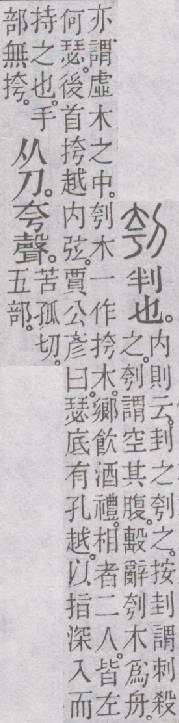 刳 判也。
內則云。刲之刳之。按刲謂刺殺
之。刳謂空其腹。毄辭刳木爲舟。
亦謂虛木之中。刳木一作挎木。鄉飲酒禮。相者二人皆左
何瑟。後首挎越内弦。賈公彥曰。瑟底有孔越。以指深入而
持之也。手
部無挎。
从刀。夸聲。
苦孤切。
五部。